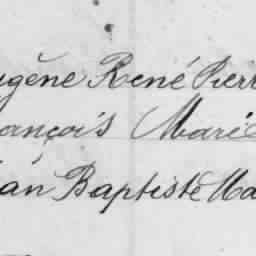 ugène René Pierr
ançois Marie
an Baptiste Ma